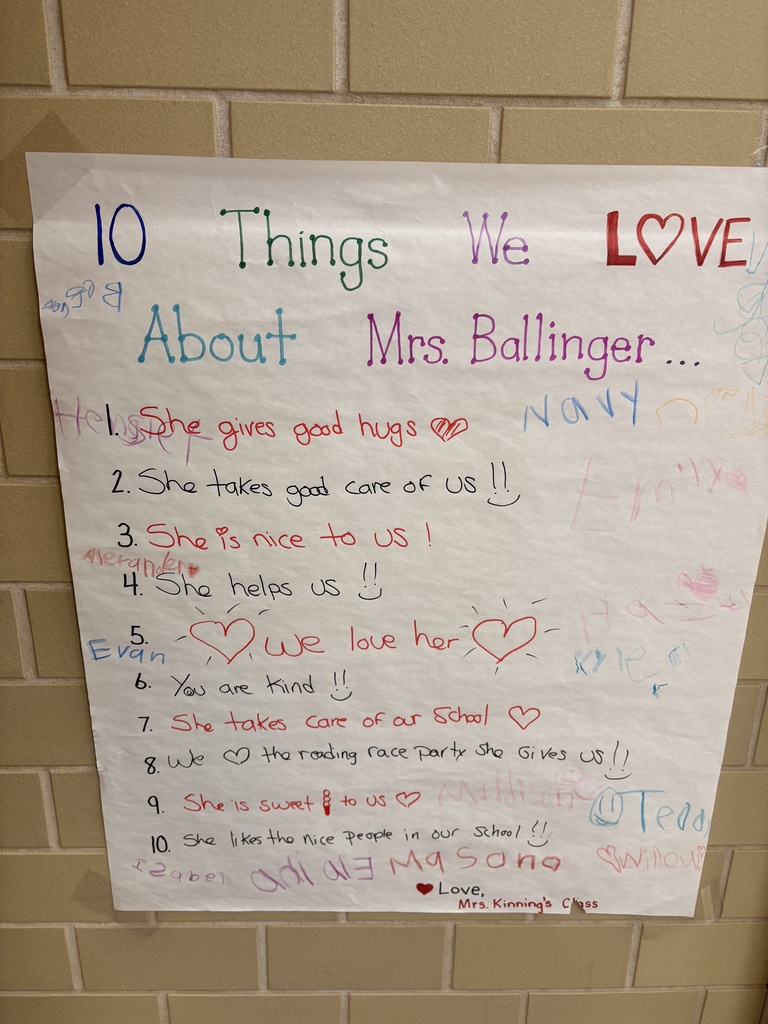 10 Things We LOVE
About Mrs. Ballinger...
Navy
1. She gives good hugs
2. She takes good care of us!!
3. She is nice to us!
4. She helps us!!
5. We love her
Evan
6. You are kind!!
7. She takes care of our School
8. We the reading race party she gives us!!
9. She is sweet to us
Tedd
10. She likes the nice people in our school!!
Izabel
Masono
Willow
Love,
Mrs. Kinning's Class